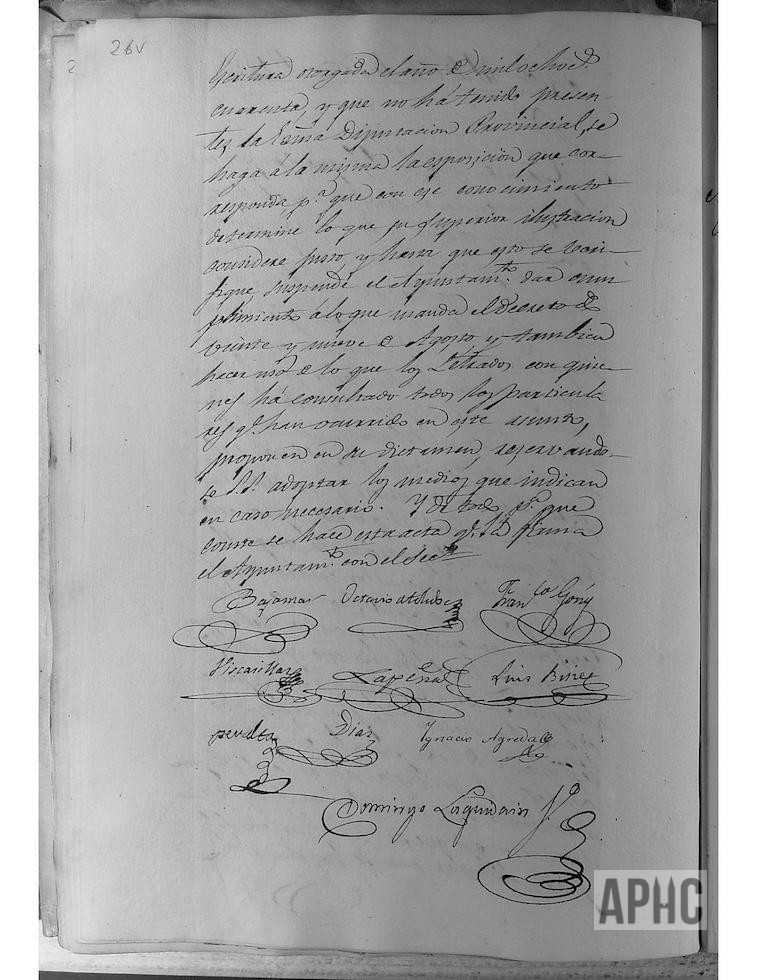 26v
Escritura otorgada el año de mil ochocs.
cuarenta, y que no há tenido presen-
tes la Exma Diputacion Provincial, se
haga á la misma la esposicion que cor-
responda pa. que con ese conocimiento
determine lo que su Superior ilustracion
considere justo, y hasta que esto se veri-
fique, suspende el Ayuntamto. dar cum
plimiento á lo que manda el Decreto de
veinte y nueve de Agosto, y tambien
hacer uso de lo que los Letrados con quie-
nes há consultado todos los particula
res qe. han ocurrido en este asunto,
proponen en su dictamen, reservando-
se S.S. adoptar los medios que indican
en caso necesario. Y de todo pa. que
conste se hace esta acta qe. la firma
el Ayuntamto. con el Secto.
Bajamar Octavio de Toledo Franco Goñy
Viscasillas Lapeña Luis
peralta Diaz Ignacio Agreda
Domingo
APHC